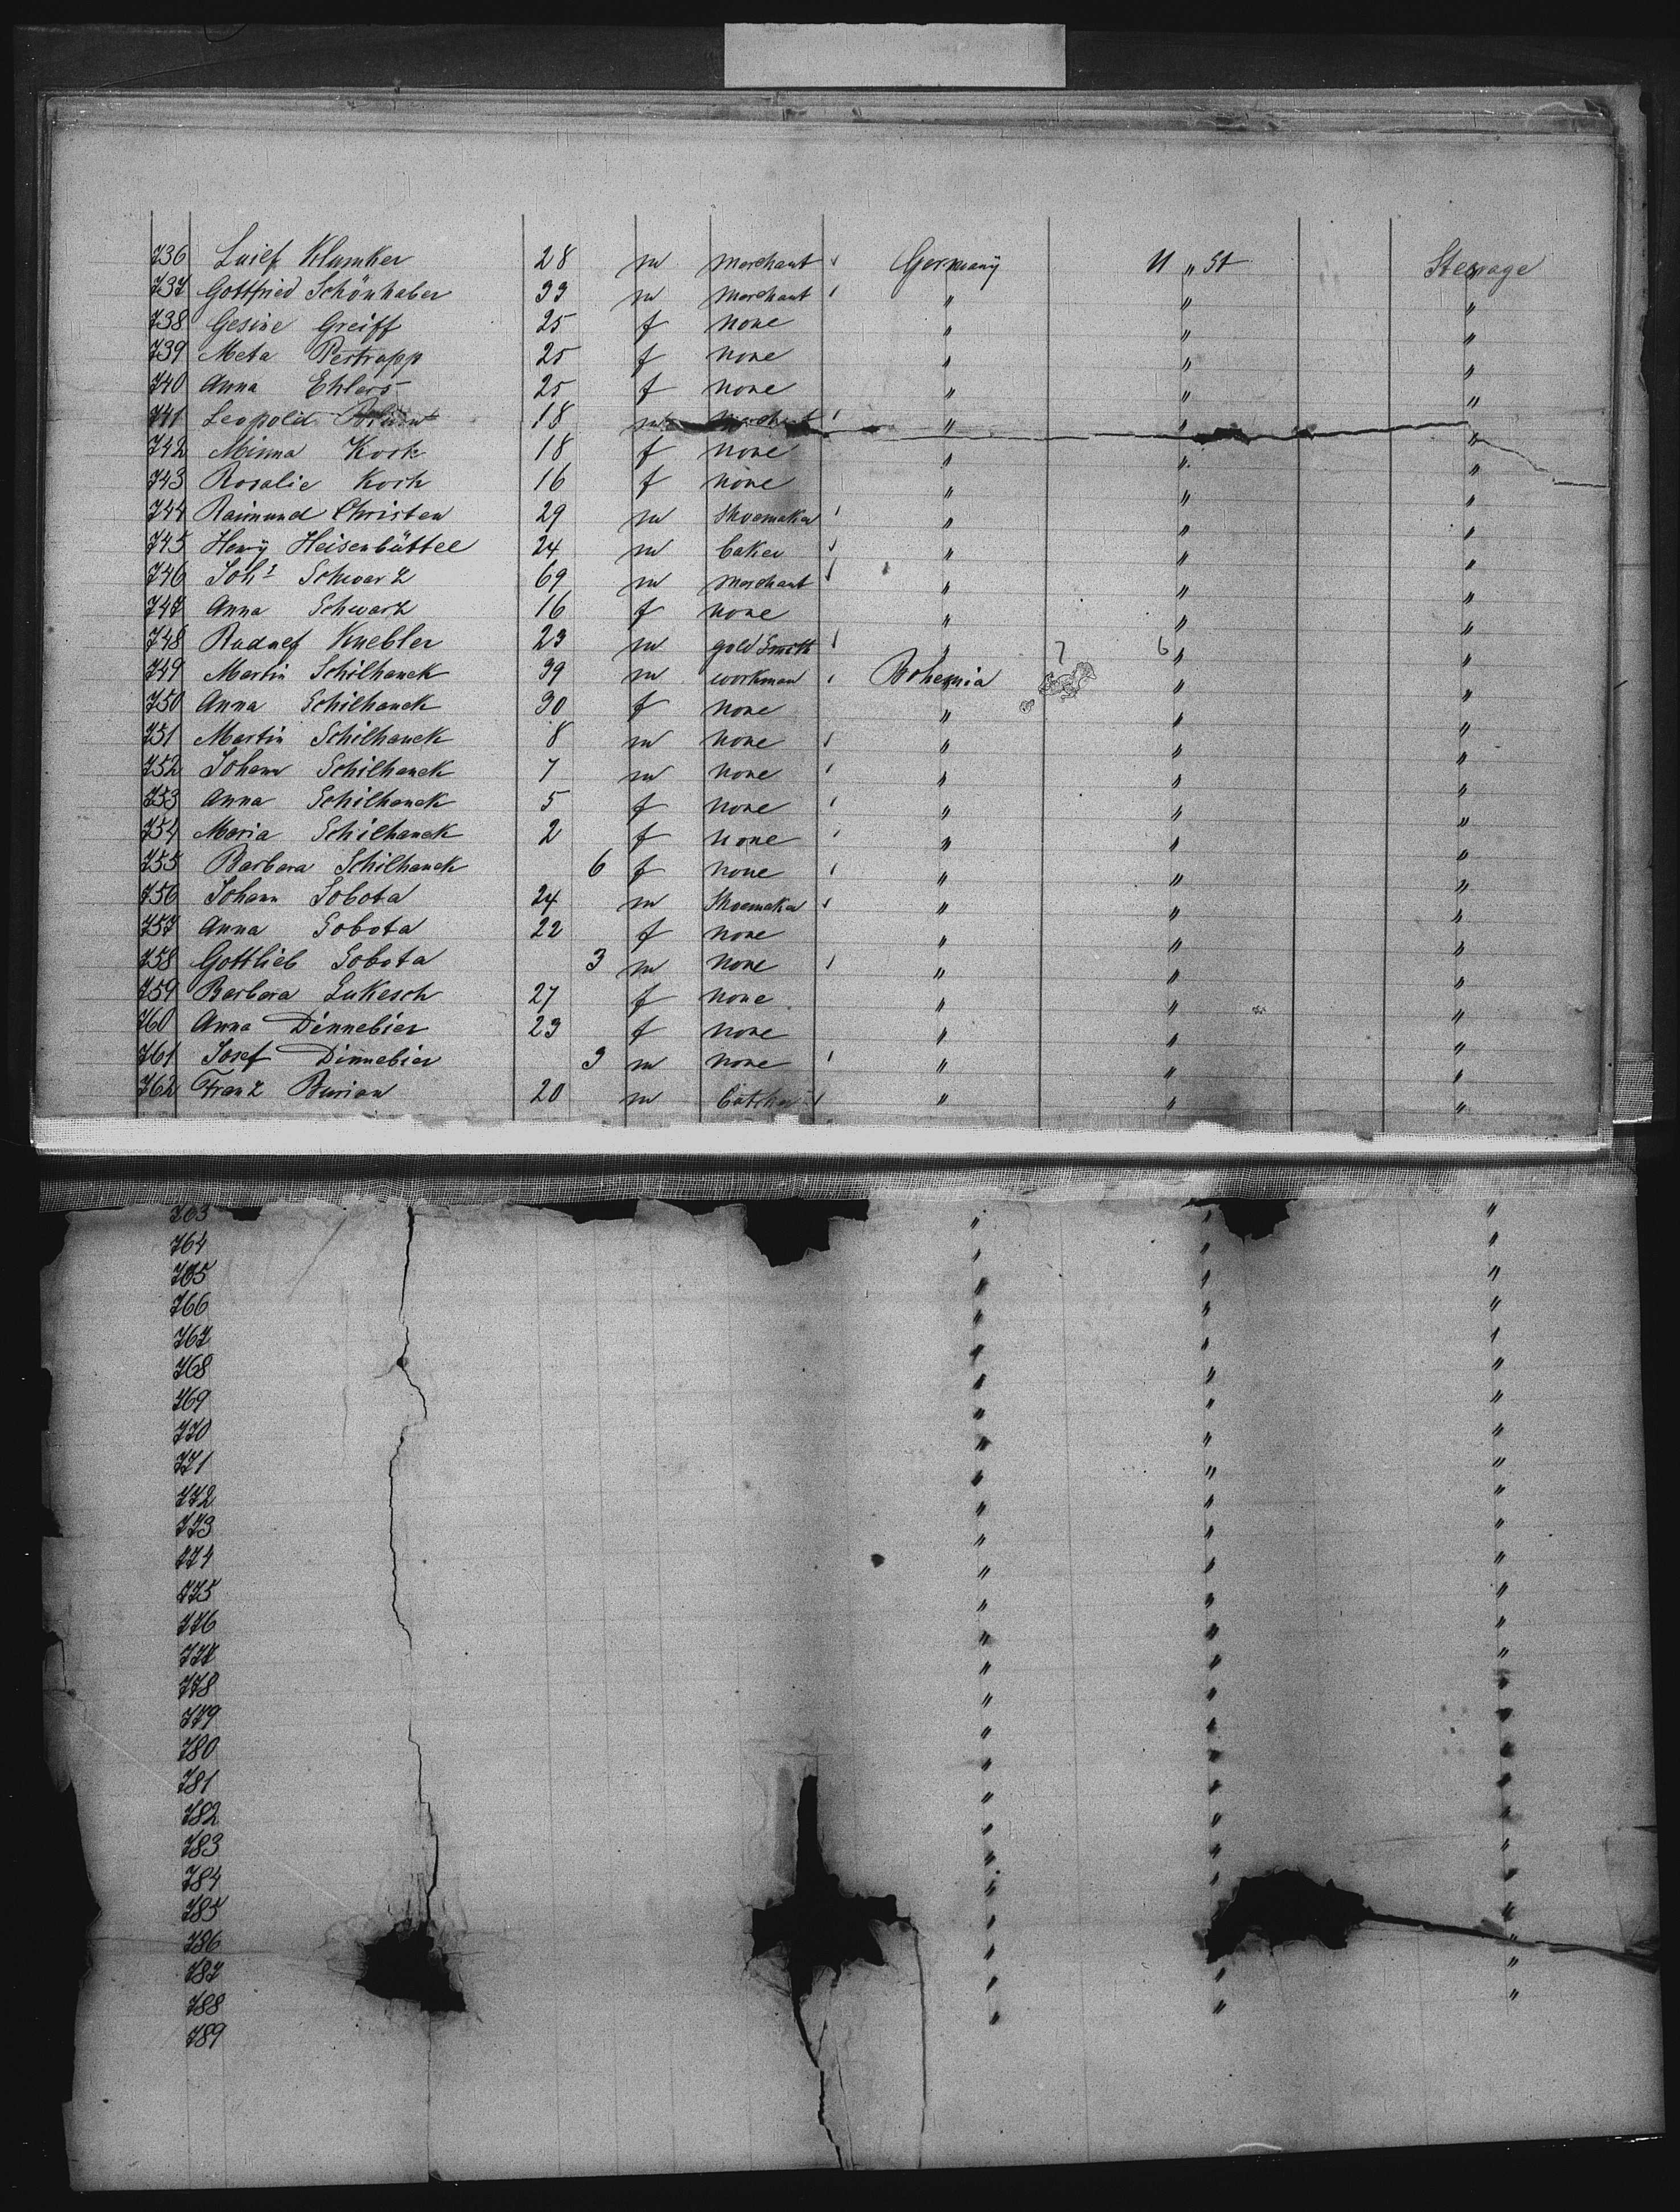 736 Luief Klumker 28 m merchant Germany U " St Steerage
737 Gottfried Schönhaber 33 m merchant " " "
738 Gesine Greiff 25 f none " " "
739 Meta Pestrupp 25 f none " " "
740 Anna Ehlers 25 f none " " "
741 Leopold 18 m merchant " " "
742 Minna Kock 18 f none " " "
743 Rosalie Koch 16 f none " " "
744 Raimund Christen 29 m Shoemaker " " "
745 Heny Heisenbüttel 24 m baker " " "
746 Joh: Schwarz 69 m merchant " " "
747 Anna Schwarz 16 f none " " "
748 Rudolf Knebler 23 m gold Smith " 7 6 " "
749 Martin Schilhanek 39 m workman Bohemia " "
750 Anna Schilhanek 30 f none " " "
751 Martin Schilhanek 8 m none " " "
752 Johann Schilhanek 7 m none " " "
753 Anna Schilhanek 5 f none " " "
754 Maria Schilhanek 2 f none " " "
755 Barbara Schilhanek 6 f none " " "
756 Johann Sobota 24 m Shoemaker " " "
757 Anna Sobota 22 f none " " "
758 Gottlieb Sobota 3 m none " " "
759 Barbara Lukesch 27 f none " " "
760 Anna Dinnebier 23 f none " " "
761 Josef Dinnebier 3 m none " " "
762 Franz Burian 20 m " " "
763 " " "
764 " " "
765 " " "
766 " " "
767 " " "
768 " " "
769 " " "
770 " " "
771 " " "
772 " " "
773 " " "
774 " " "
775 " " "
776 " " "
777 " " "
778 " " "
779 " " "
780 " " "
781 " " "
782 " " "
783 " " "
784 " " "
785 " "
786 " "
787 " " "
788 " " "
789